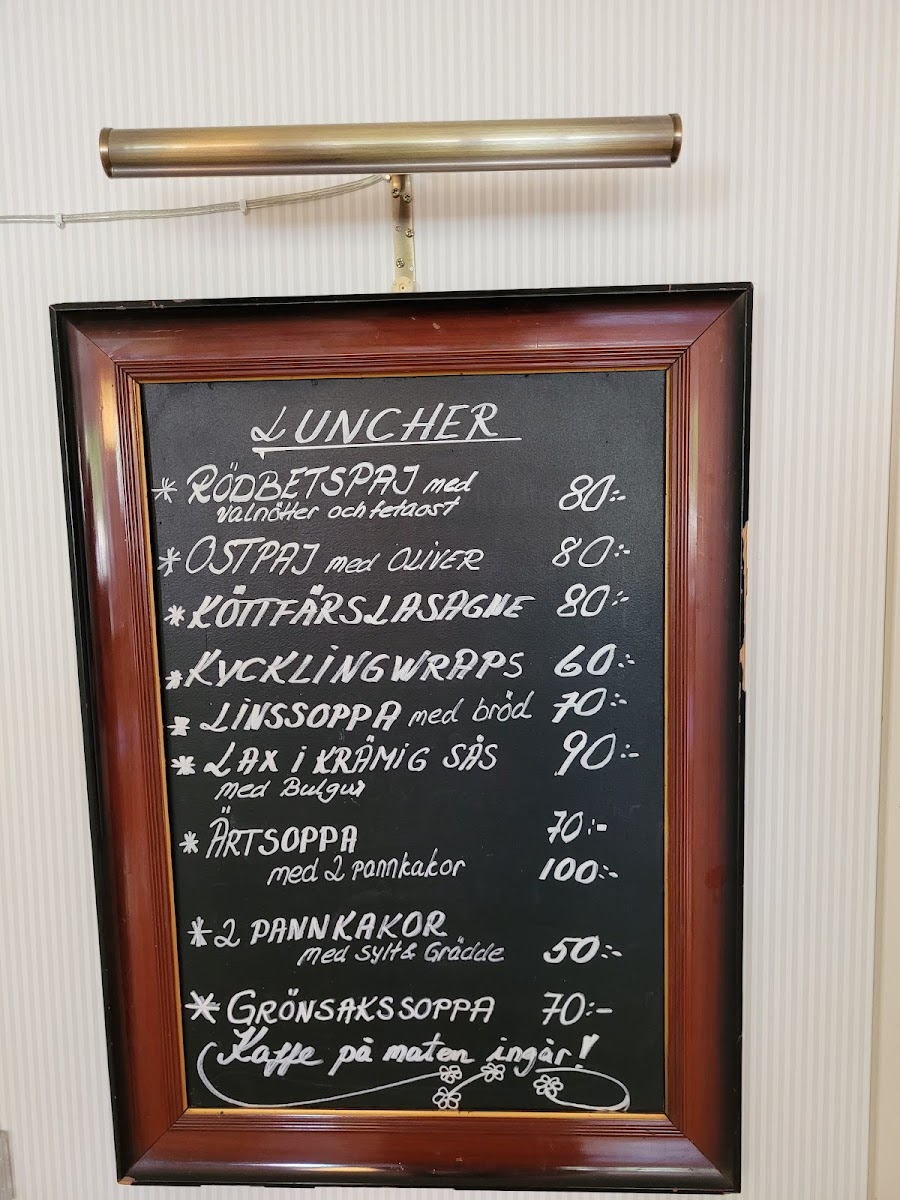 LUNCHER
* RÖDBETSPAJ med 80:-
valnötter och fetaost
* OSTPAJ med OLIVER 80:-
* KÖTTFÄRSLASAGNE 80:-
* KYCKLINGWRAPS 60:-
* LINSSOPPA med bröd 70:-
* LAX i KRÄMIG SÅS 90:-
med Bulgur
* ÄRTSOPPA 70:-
med 2 pannkakor 100:-
* 2 PANNKAKOR
med Sylt & Grädde 50:-
* GRÖNSAKSSOPPA 70:-
Kaffe på maten ingår!